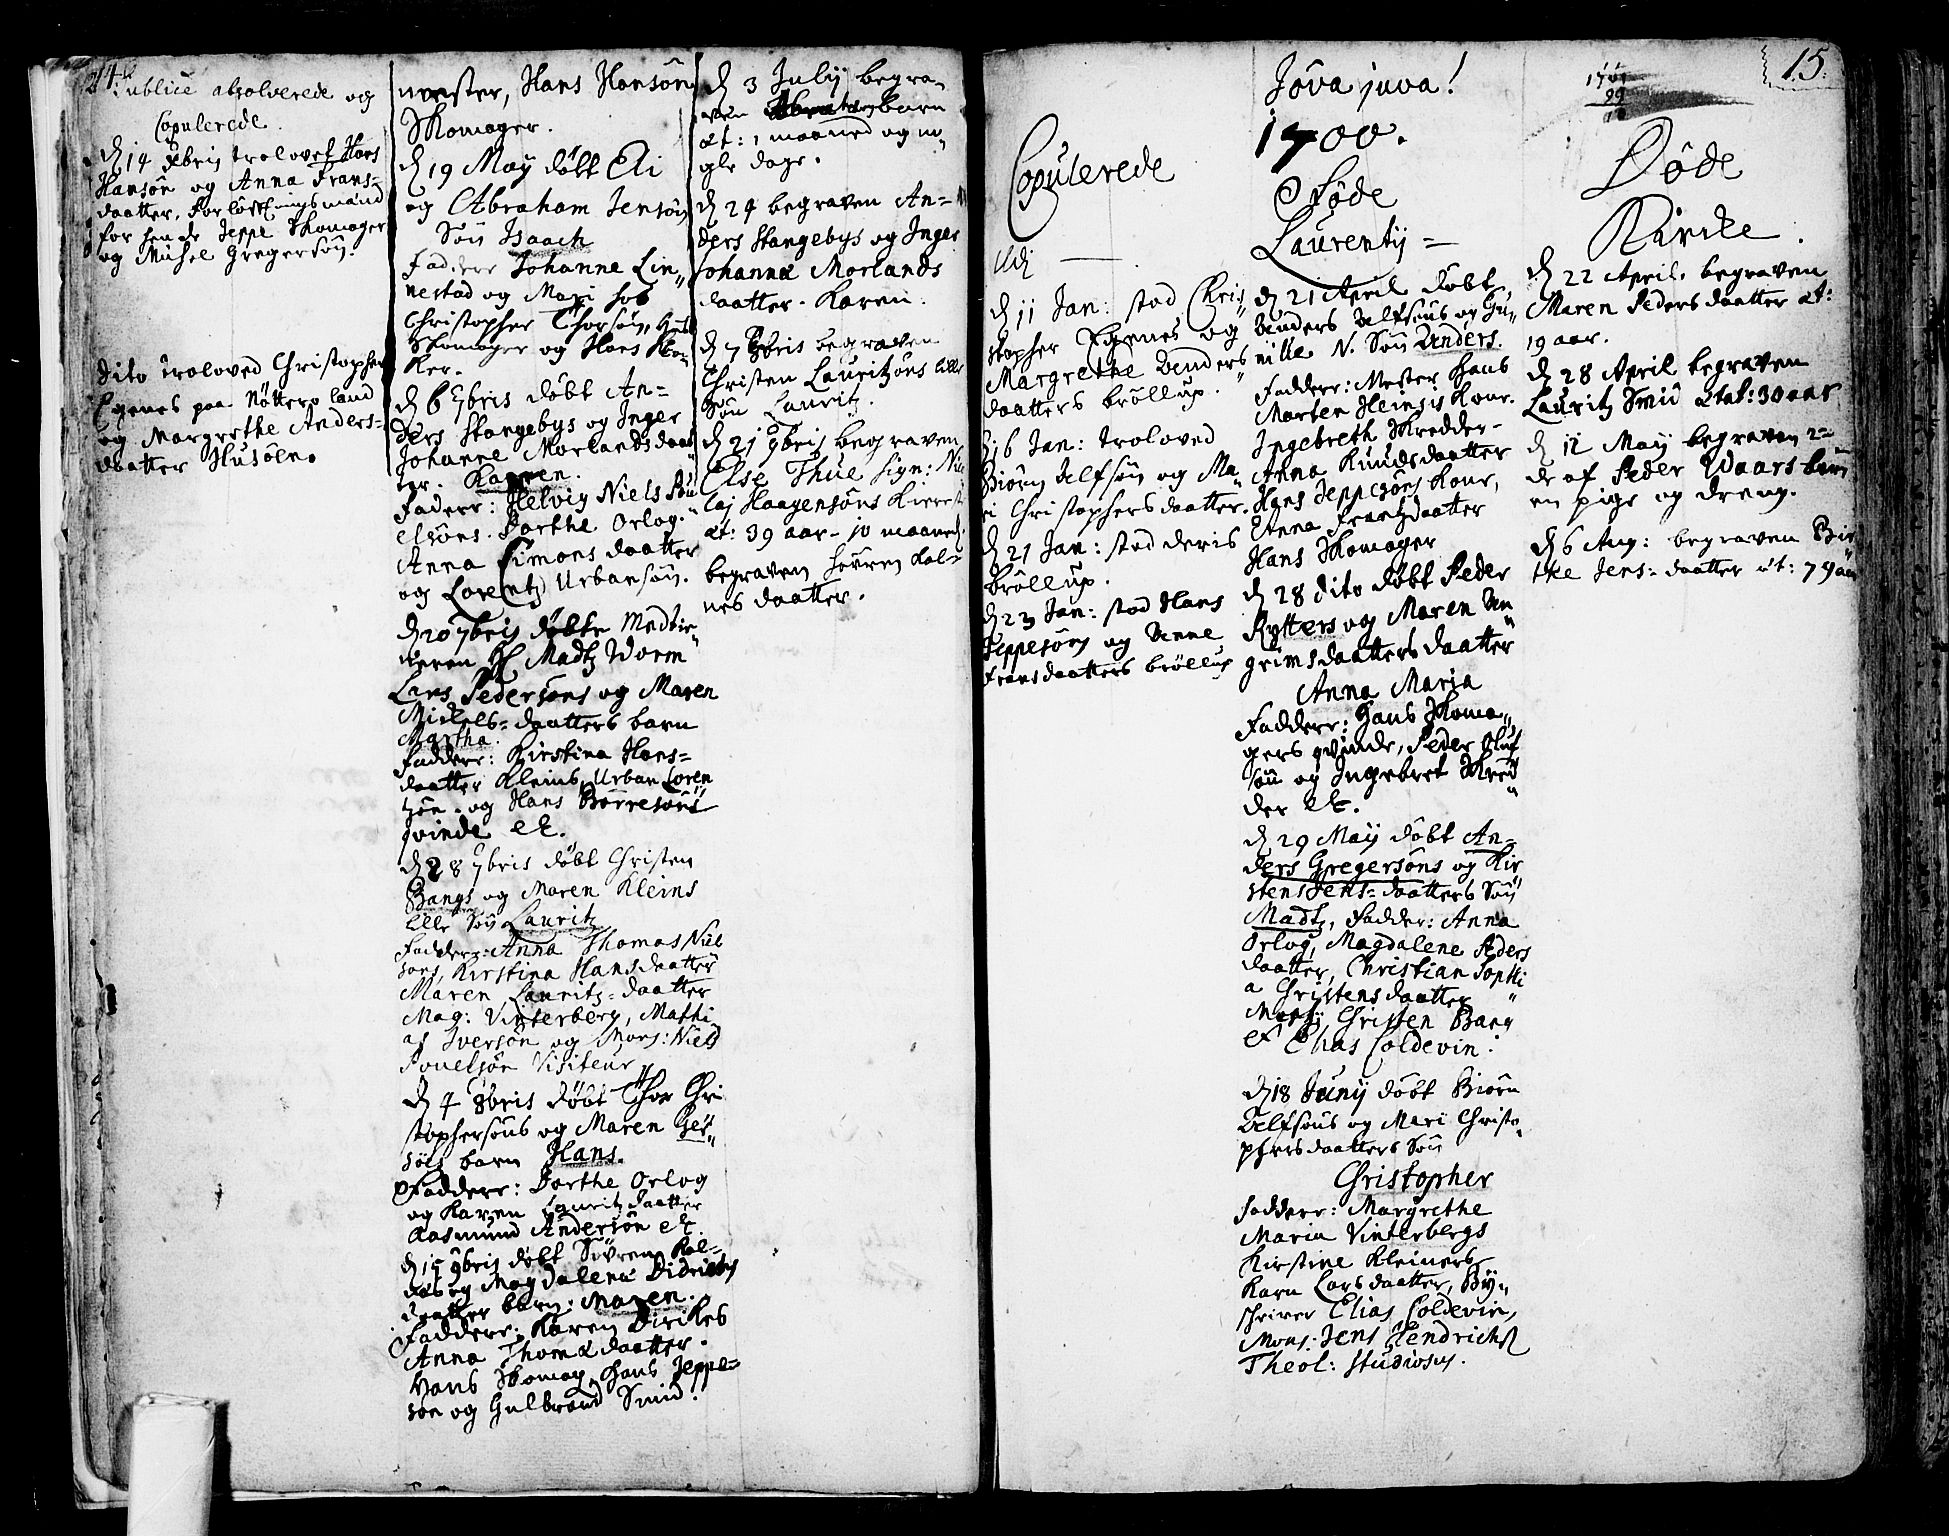 14
Publice absolverede og
Copulerede.
d 14 xbris trolovet Hans
Hansön og Anna Frans=
daatter, forlöftningsmänd
for hende Jeppe Skomager
og Michel Gregersön.
Dito troloved Christopher
Egenes paa Nötterö land
og Margrethe Anders=
daatter Husöen.
mester, Hans Hansön
Skomager.
d 19 Maÿ döbt Eli
og Abraham Jensöns
Sön Isaach
Faddere Johanne Lin„
nestad og Mari hos
Christopher Thorsön,
Skomager og Hans
ker.
d 6 7bris döbt An=
ders Stangebys og Inger
Johanne Morlandsdaat
ter. Karen.
Fadere: Helvig Niels Pou
elsöns. Dorthe Orlog.
Anna Simonsdaatter
og Lorentz Urbansön.
d 20 7bris döbte Medtie„
neren H Madtz Worm
Lars Pedersöns og Maren
Mickels=daatters barn
Martha.
Faddere: Kirstina Hans=
daatter Kleins, Urban Loren
tzön. og Hans Börresöns
qvinde etc.
d 28 7bris döbt Christen
Bangs og Maren Kleins
lille Sön Lauritz
Faddere: Anna Thomas Niel
söns, Kirstina Hansdaatter
Maren Lauritz=daatter
Mag: Vinterberg, Mathi
as Iversön og Mons: Niels
Pouelsön Visiteur
d 4 8bris döbt Thor Chri
stophersöns og Maren
barn Hans.
Faddere: Dorthe Orlog
og Karen Lauritzdaatter
Rasmund Andersön etc.
d 15 9bris döbt Sövren Kol=
dås og Magdalena Didrichs
daatter barn: Maren.
Faddere: Karen Dirikes
Anna Thomædaatter.
Hans Skomag. Hans Jeppe=
sön og Gulbrand Smid.
d 3 Julÿ begra=
ven barn
æt: 1 maaned og no„
gle dage.
d 24 begraven An=
ders Stangebys og Inger
Johannæ Morlands
daatter. Karen.
d 7 8bris begraven
Christen Lauritzöns lille
Sön Lauritz.
d 21 9bris begraven
Else Thue Sign: Nic
laj Haagensöns Kiereste
æt: 39 aar - 10 maaned.
begraven Sövren Kol=
nes daatter.
15.
1701
99
Jova juva!
1700.
Copulerede
d 11 Jan: stod Chris
stopher Egenes og
Margrethe Anders„
daatters bröllup.
d 16 Jan: troloved
Biörn Ulfsön og Ma„
ri Christophersdaatter.
d 21 Jan: stod deris
bröllup.
d 23 Jan: stod Hans
Jeppesöns og Anne
Fransdaatters bröllup
Föde
Laurentij =
d 21 April döbt
Anders Ulfsöns og Gu„
nille N. Sön Anders.
Faddere: Mester Hans
Morten Heinsis Kone.
Ingebreth Skredder=
Anna Knudsdaatter
Hans Jeppesöns Kone,
Anna Frantzdaatter
Hans Skomager
d 28 dito döbt Peder
Rytters og Maren An„
grimsdaatters daatter
Anna Maria
Faddere: Hans Skoma„
gers qvinde, Peder Oluf
sön og Ingebret Skred„
der etc.
d 29 Maÿ döbt An=
ders Gregersöns og Kir
stens Jens=daatters Sön
Madtz, Fadder: Anna
Orlog, Magdalene Peders
daatter, Christian Sophi
a Christensdaatter
Christen Bang
et Elias Coldevin.
d 18 Junÿ döbt Biörn
Ulfsöns og Mari Christo„
phersdaatters Sön
Christopher
Faddere: Margrethe
Maria Vinterbergs
Kirstine Kleiners
Karn Larsdaatter, Bÿ„
schriver Elias Coldevin,
Mons: Jens Hendrichs
Theol: Studiosus.
Döde
Kircke.
d 22 April. begraven
Maren Pedersdaatter æt:
19 aar.
d 28 April begraven
Lauritz Smid ætat: 30 aar
d 12 Maÿ begraven 2=
de af Peder Waars börn
en pige og dreng.
d 6 Aug: begraven Bir
tke Jens=daatter æt: 79 aar